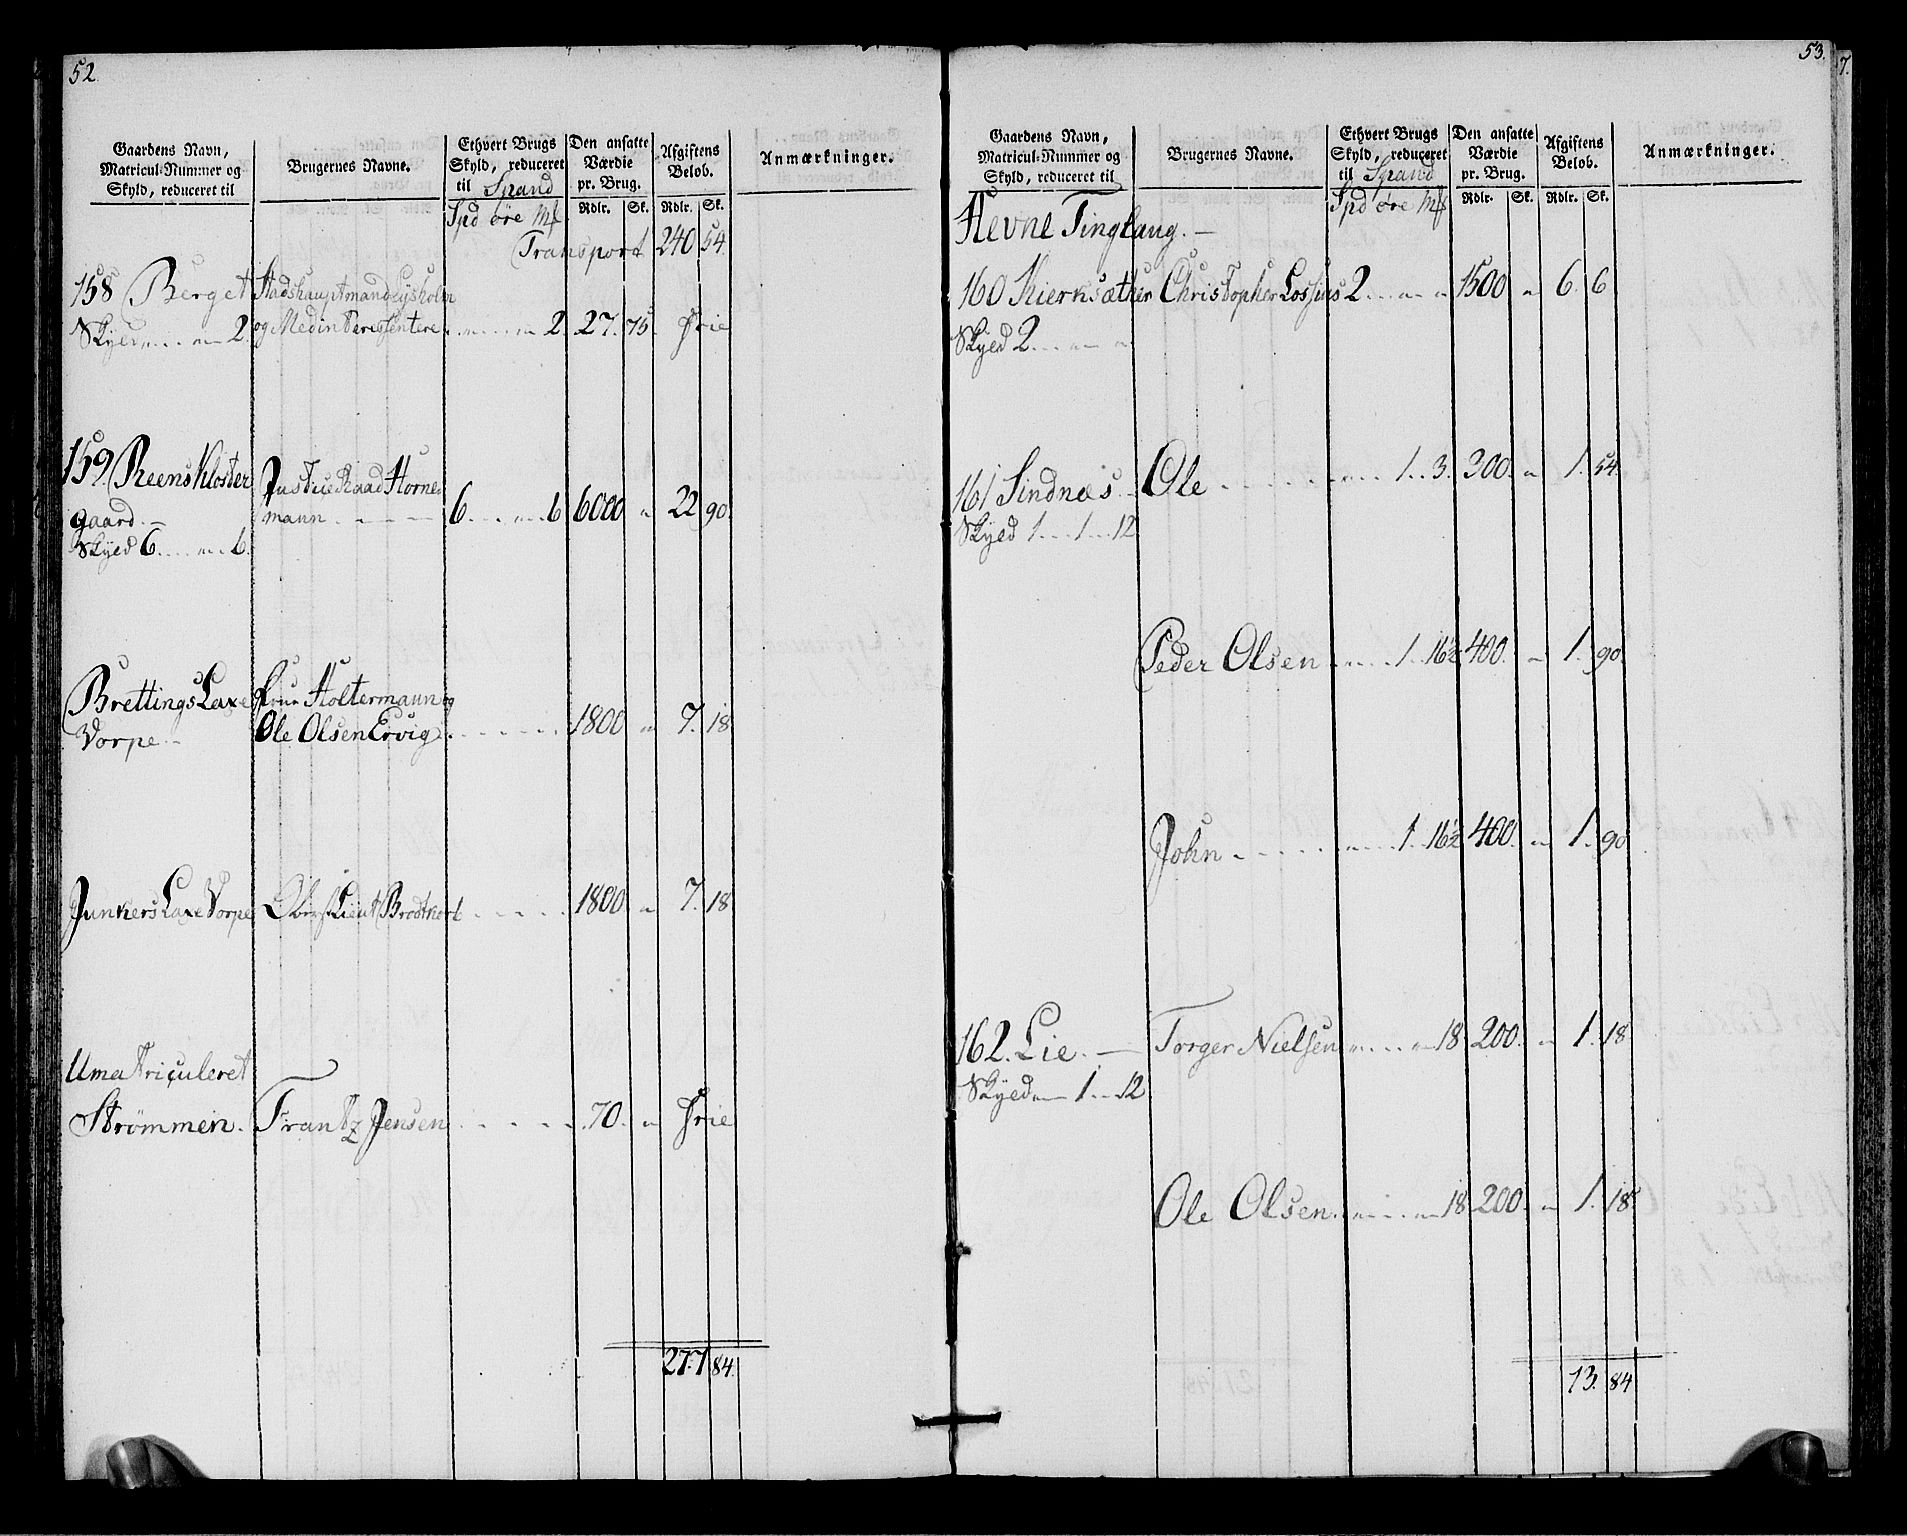 52.
Gaardens Navn,
Matricul-Nummer og
Skyld, reduceret til
Brugernes Navne.
Ethvert Brugs
Skyld, reduceret
til Spand
Spd øre Mf
Den ansatte
Værdie
pr. Brug.
Rdlr. Sk.
Afgiftens
Belob.
Rdlr. Sk.
Anmærkninger.
Transport 240 54
158 Berget Stadshauptmand Lysholm
Skyld 2. og Medinteressentere 2. 27. 75. frie
159 Reens Kloster Justice Raad Horne-
gaard mann 6 6 6000 " 22 90.
Skyld 6 6.
Brettings Laxe Frue Holtermann og
Vorpe Ole Olsen Ervig 1800 " 7. 18
Junkers Laxe Vorpe Oberst Lieut Brodtkorb 1800 " 7. 18
Umatriculeret
Strømmen. Frantz Jensen 70. " frie
277 84.
53.
7.
Gaardens Navn,
Matricul-Nummer og
Skyld, reduceret til
Brugernes Navne.
Ethvert Brugs
Skyld, reduceret
til Spand
Spd øre Mf
Den ansatte
Værdie
pr. Brug.
Rdlr. Sk.
Afgiftens
Belob.
Rdlr. Sk.
Anmærkninger.
Hevne Tinglaug.
160 Kiernsæther Christopher Lossius 2 1500 " 6. 6
Skyld 2
161 Sindnæs Ole 1. 3. 300. " 1. 54.
Skyld 1 1 12
Peder Olsen 1. 16½ 400. " 1. 90.
John 1. 16½ 400. " 1. 90.
162. Lie. Torger Nielsen 18 200. " 1. 18
Skyld 1 12
Ole Olsen 18 200. " 1. 18.
13. 84